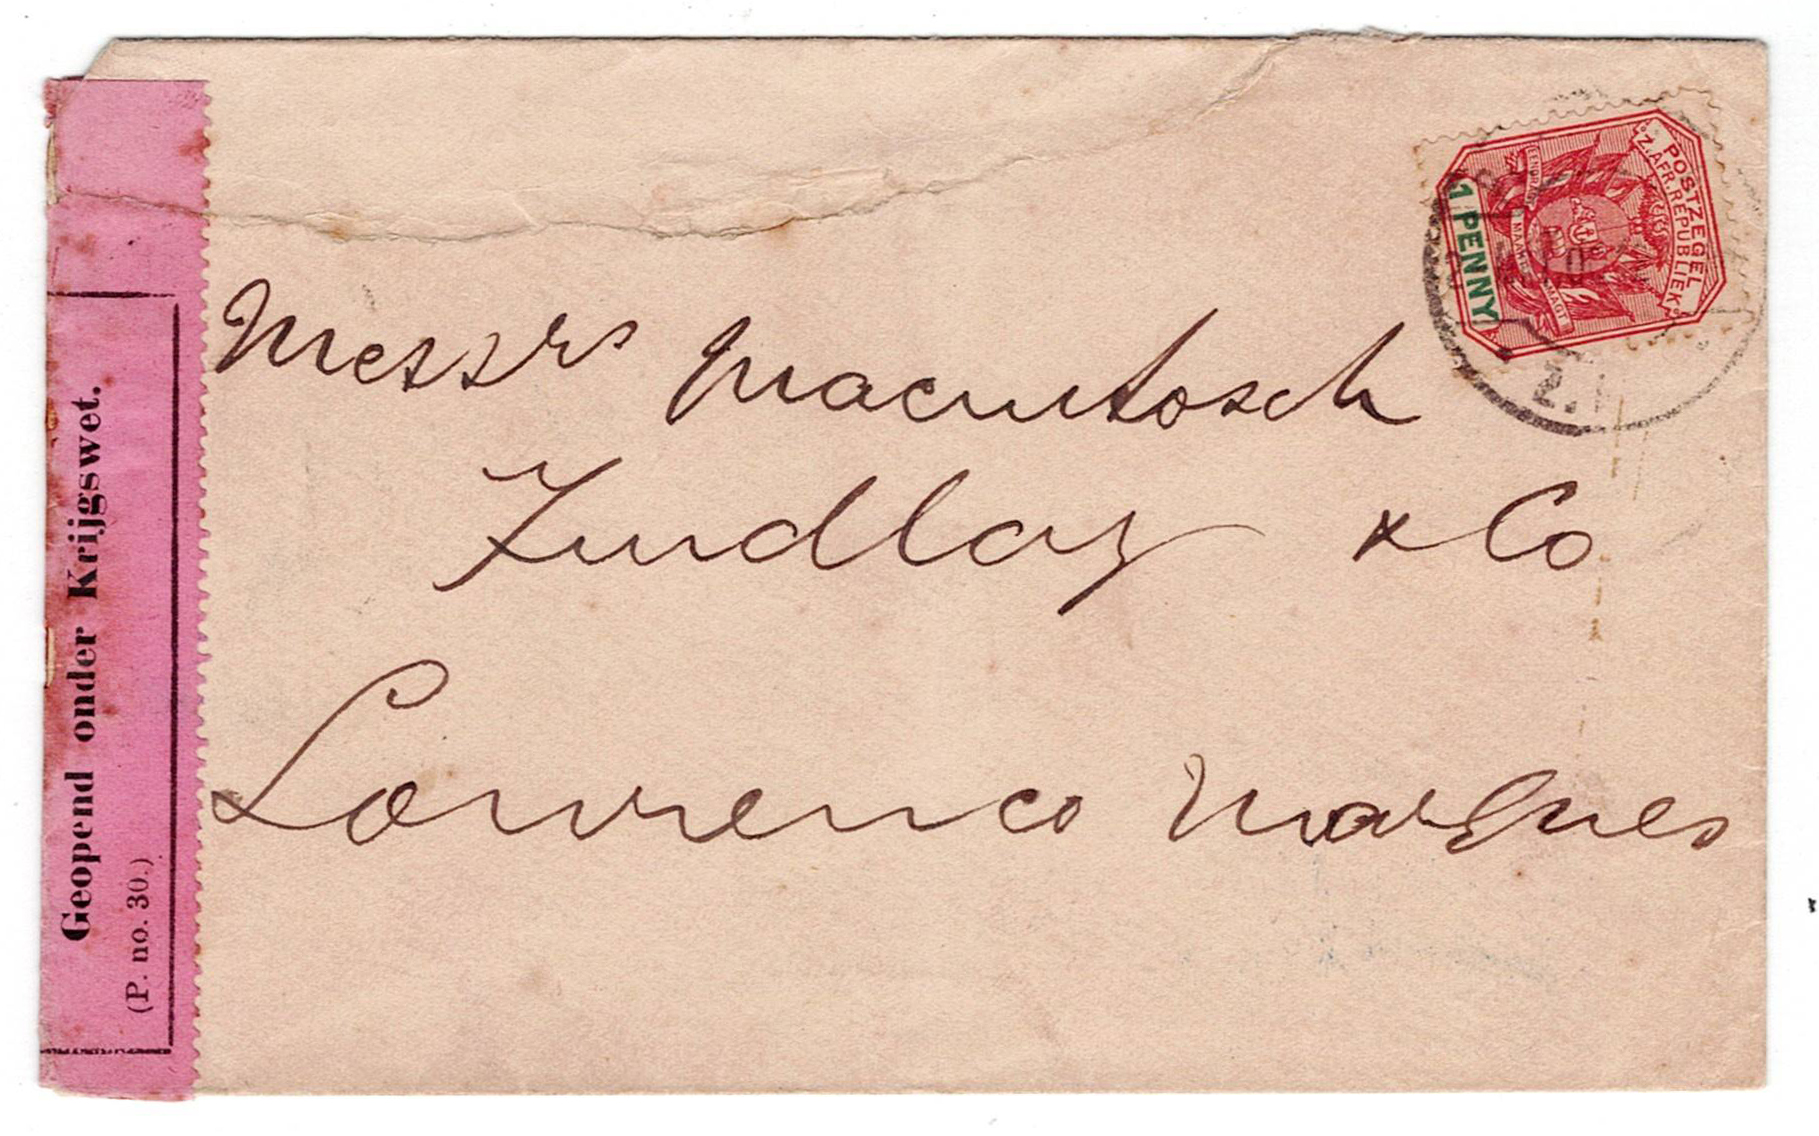 Geopend onder Krijgswet.
(P. no. 30.)
POSTZEGEL
Z. AFR. REPUBLIEK
1 PENNY
Messrs Macintosch
Findlay & Co
Lourenco Marques